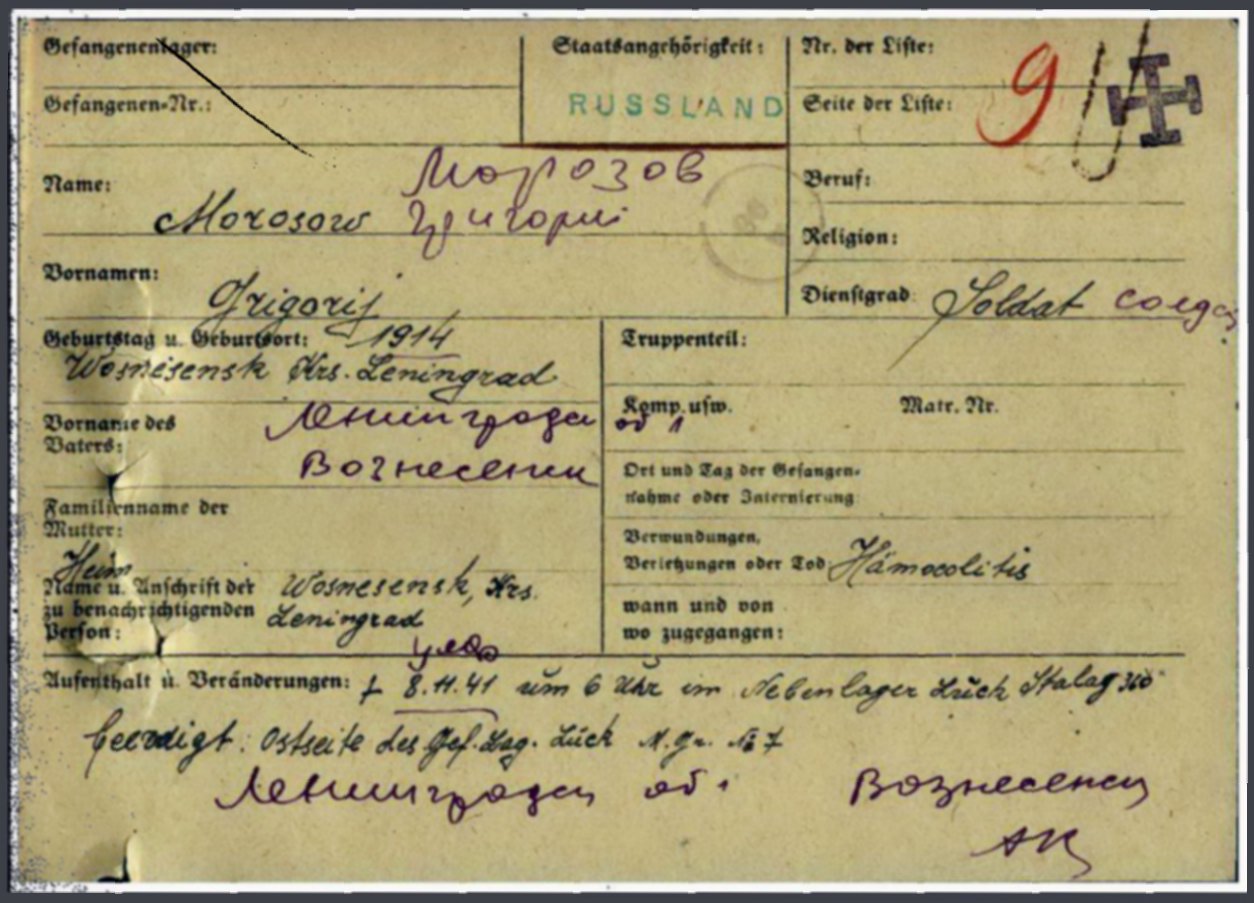 Gefangenenlager:
Staatsangehörigkeit:
Nr. der Liste:
Gefangenen-Nr.:
RUSSLAND
Seite der Liste:
9
Name:
Морозов
Morosow
Григорий
Beruf:
Religion:
Vornamen:
Grigorij
Dienstgrad: Soldat солдат
Geburtstag u. Geburtsort: 1914
Wosnesensk Krs. Leningrad
Truppenteil:
Vorname des
Vaters:
Ленинградск
об
Вознесенск
Komp. usw.
Matr. Nr.
Ort und Tag der Gefangen-
nahme oder Internierung
Familienname der
Mutter:
Verwundungen,
Verletzungen oder Tod: Hämocolitis
Heim
Name u. Anschrift der
zu benachrichtigenden
Person:
Wosnesensk, Krs.
Leningrad
wann und von
wo zugegangen:
Aufenthalt u. Veränderungen: † 8.11.41 um 6 Uhr im Nebenlager Luck Stalag 360
beerdigt: Ostseite des Gef. Lag. Luck M. Gr. № 7
Ленинградск об. Вознесенск